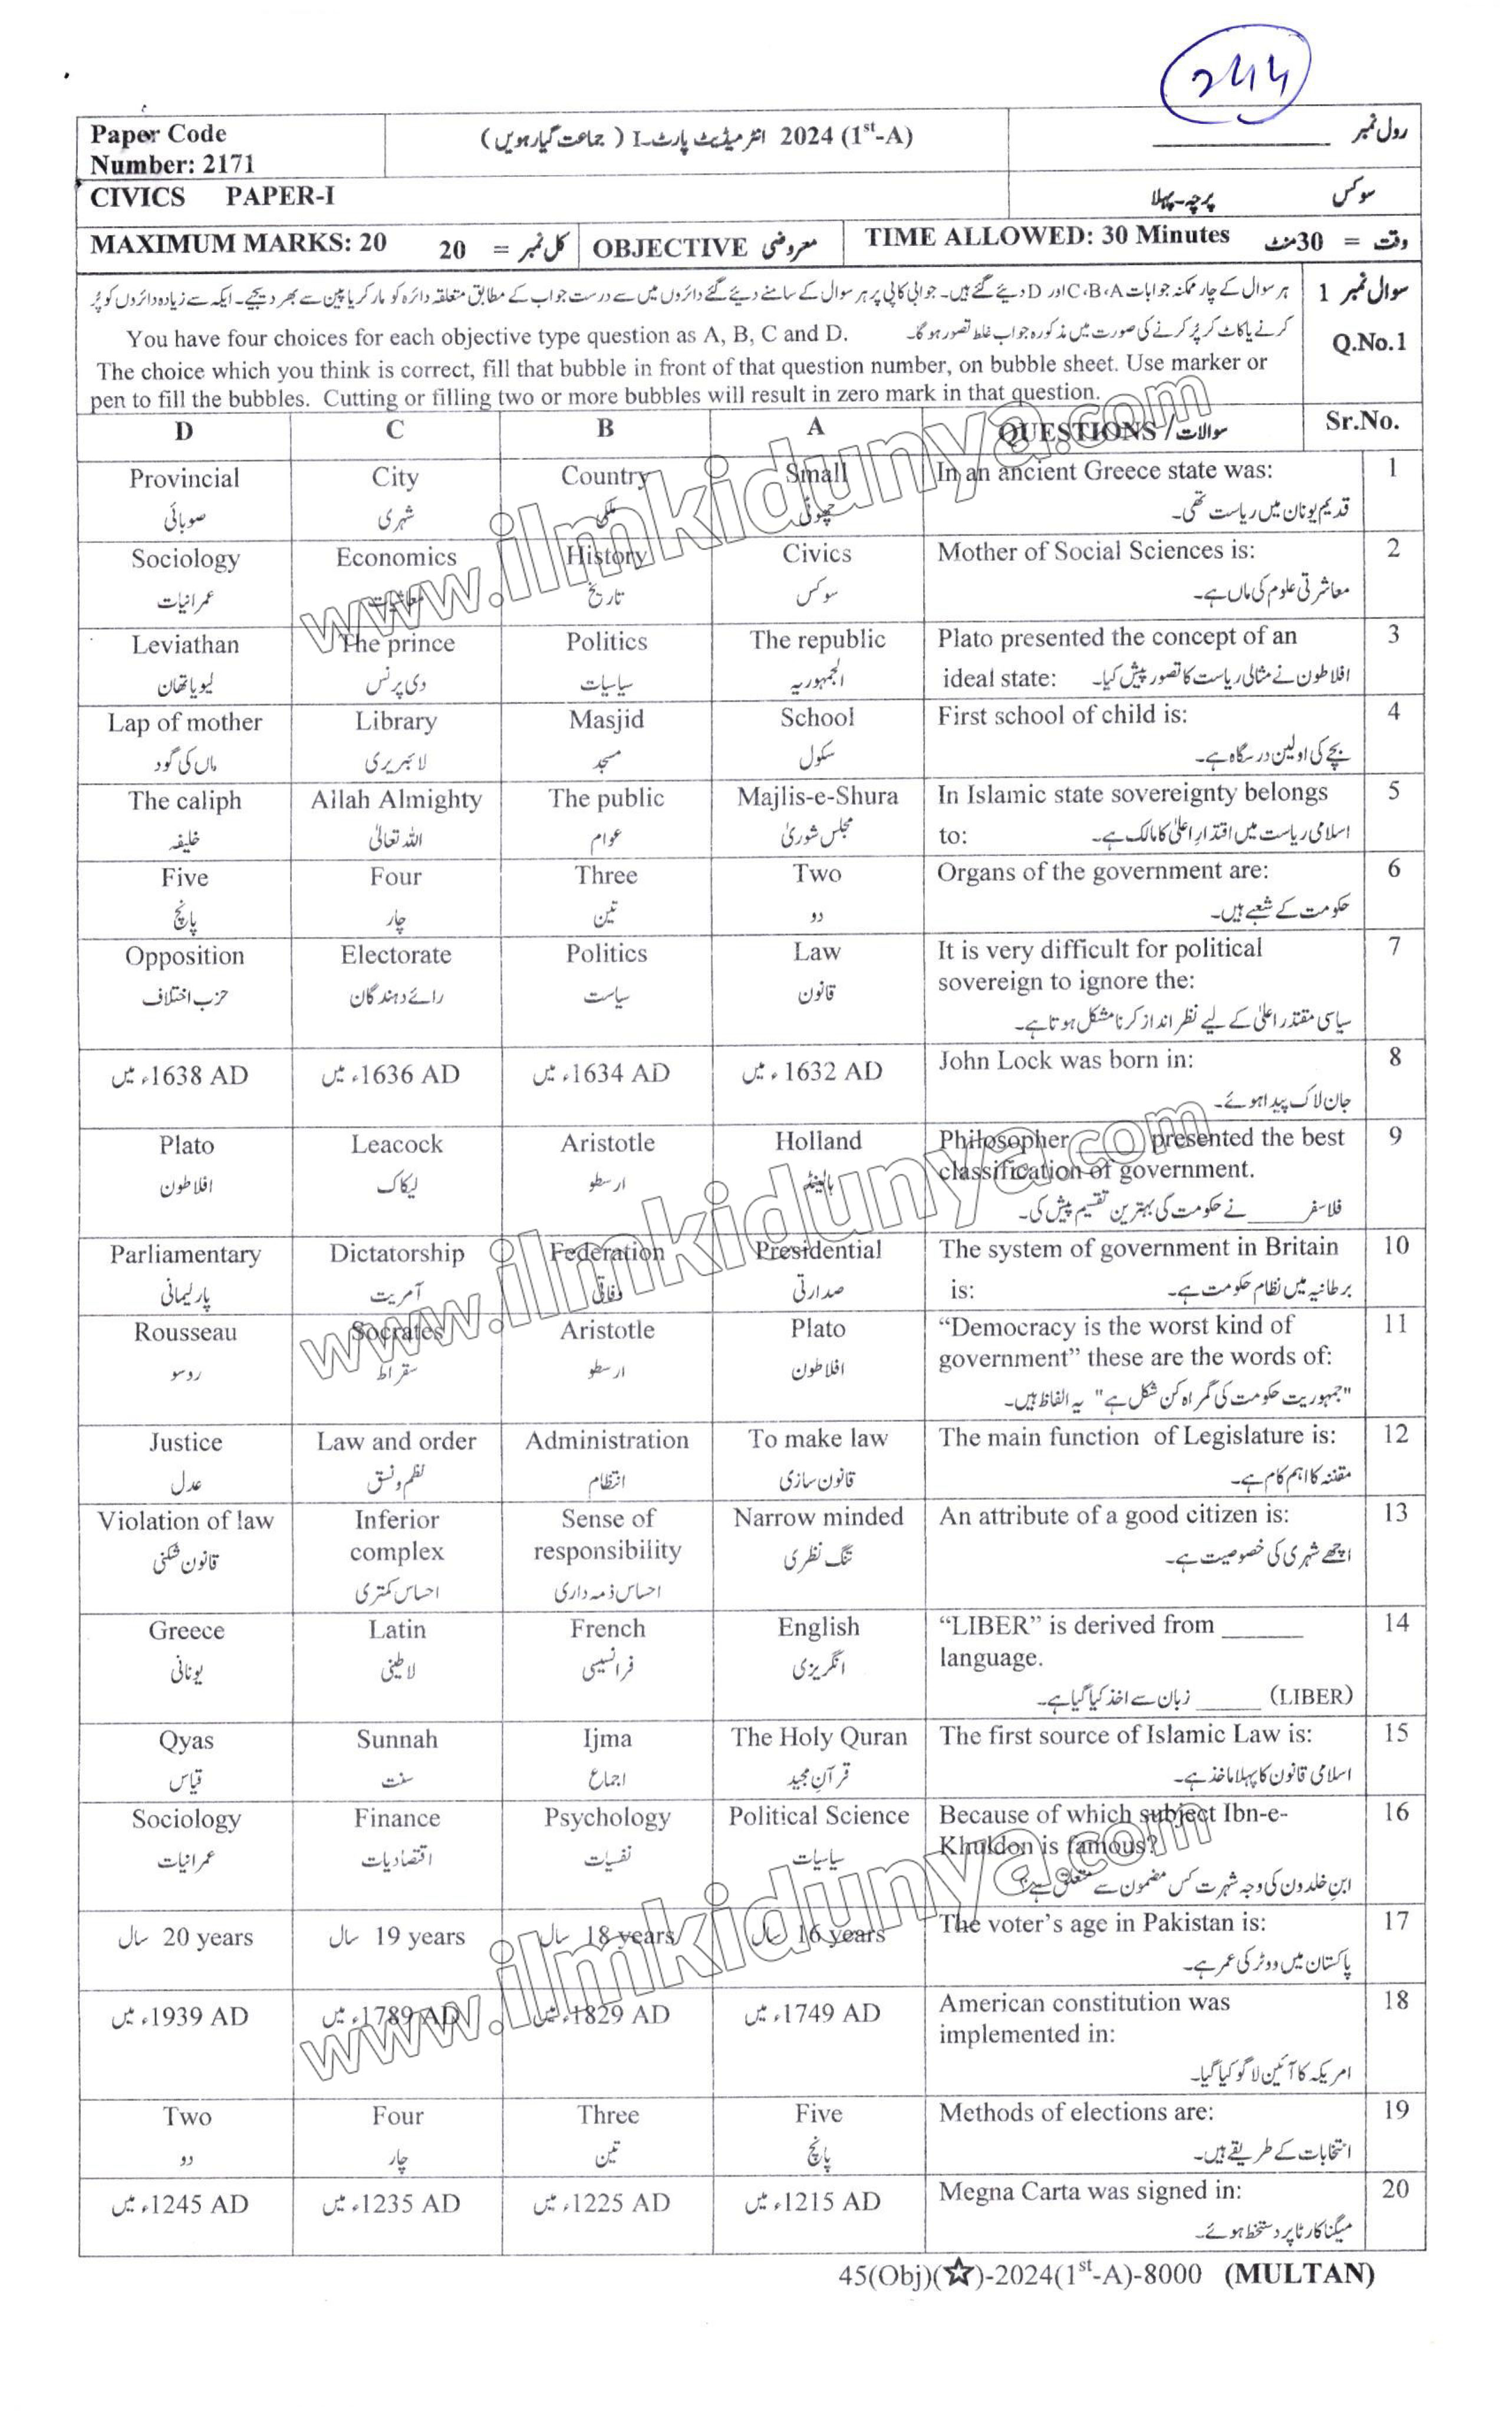 244
Paper Code
Number: 2171
2024 (1st-A) انٹرمیڈیٹ پارٹ-I (جماعت گیارہویں)
رول نمبر ____________
CIVICS PAPER-I
سوکس پرچہ-پہلا
MAXIMUM MARKS: 20
کل نمبر = 20
OBJECTIVE معروضی
TIME ALLOWED: 30 Minutes
وقت = 30منٹ
سوال نمبر 1
Q.No.1
ہر سوال کے چار ممکنہ جوابات C،B،A اور D دیئے گئے ہیں۔ جوابی کاپی پر ہر سوال کے سامنے دیئے گئے دائروں میں سے درست جواب کے مطابق متعلقہ دائرہ کو مارکر یا پین سے بھر دیجیے۔ ایک سے زیادہ دائروں کو پُر
کرنے یا کاٹ کر پُر کرنے کی صورت میں مذکورہ جواب غلط تصور ہو گا۔
You have four choices for each objective type question as A, B, C and D.
The choice which you think is correct, fill that bubble in front of that question number, on bubble sheet. Use marker or
pen to fill the bubbles. Cutting or filling two or more bubbles will result in zero mark in that question.
D C B A QUESTIONS / سوالات Sr.No.
Provincial City Country Small In an ancient Greece state was: 1
صوبائی شہری ملکی چھوٹی قدیم یونان میں ریاست تھی۔
Sociology Economics History Civics Mother of Social Sciences is: 2
عمرانیات معاشیات تاریخ سوکس معاشرتی علوم کی ماں ہے۔
Leviathan The prince Politics The republic Plato presented the concept of an 3
ideal state:
لیویاتھان دی پرنس سیاسیات الجمہوریہ افلاطون نے مثالی ریاست کا تصور پیش کیا۔
Lap of mother Library Masjid School First school of child is: 4
ماں کی گود لائبریری مسجد سکول بچے کی اولین درسگاہ ہے۔
The caliph Allah Almighty The public Majlis-e-Shura In Islamic state sovereignty belongs 5
to:
خلیفہ اللہ تعالیٰ عوام مجلس شوریٰ اسلامی ریاست میں اقتدارِ اعلیٰ کا مالک ہے۔
Five Four Three Two Organs of the government are: 6
پانچ چار تین دو حکومت کے شعبے ہیں۔
Opposition Electorate Politics Law It is very difficult for political 7
sovereign to ignore the:
حزب اختلاف رائے دہندگان سیاست قانون سیاسی مقتدر اعلیٰ کے لیے نظر انداز کرنا مشکل ہوتا ہے۔
1638 AD ء میں 1636 AD ء میں 1634 AD ء میں 1632 AD ء میں John Lock was born in: 8
جان لاک پیدا ہوئے۔
Plato Leacock Aristotle Holland Philosopher ______ presented the best 9
classification of government.
افلاطون لیکاک ارسطو ہالینڈ فلاسفر ______ نے حکومت کی بہترین تقسیم پیش کی۔
Parliamentary Dictatorship Federation Presidential The system of government in Britain 10
is:
پارلیمانی آمریت وفاقی صدارتی برطانیہ میں نظام حکومت ہے۔
Rousseau Socrates Aristotle Plato “Democracy is the worst kind of 11
government” these are the words of:
روسو سقراط ارسطو افلاطون "جمہوریت حکومت کی گمراہ کن شکل ہے" یہ الفاظ ہیں۔
Justice Law and order Administration To make law The main function of Legislature is: 12
عدل نظم و نسق انتظام قانون سازی مقننہ کا اہم کام ہے۔
Violation of law Inferior complex Sense of responsibility Narrow minded An attribute of a good citizen is: 13
قانون شکنی احساس کمتری احساس ذمہ داری تنگ نظری اچھے شہری کی خصوصیت ہے۔
Greece Latin French English “LIBER” is derived from ______ 14
language.
یونانی لاطینی فرانسیسی انگریزی (LIBER) ______ زبان سے اخذ کیا گیا ہے۔
Qyas Sunnah Ijma The Holy Quran The first source of Islamic Law is: 15
قیاس سنت اجماع قرآن مجید اسلامی قانون کا پہلا ماخذ ہے۔
Sociology Finance Psychology Political Science Because of which subject Ibn-e- 16
Khuldon is famous?
عمرانیات اقتصادیات نفسیات سیاسیات ابنِ خلدون کی وجہ شہرت کس مضمون سے متعلق ہے؟
20 years سال 19 years سال 18 years سال 16 years سال The voter's age in Pakistan is: 17
پاکستان میں ووٹر کی عمر ہے۔
1939 AD ء میں 1789 AD ء میں 1829 AD ء میں 1749 AD ء میں American constitution was 18
implemented in:
امریکہ کا آئین لاگو کیا گیا۔
Two Four Three Five Methods of elections are: 19
دو چار تین پانچ انتخابات کے طریقے ہیں۔
1245 AD ء میں 1235 AD ء میں 1225 AD ء میں 1215 AD ء میں Megna Carta was signed in: 20
میگنا کارٹا پر دستخط ہوئے۔
45(Obj)(☆)-2024(1st-A)-8000 (MULTAN)
www.ilmkidunya.com
www.ilmkidunya.com
www.ilmkidunya.com